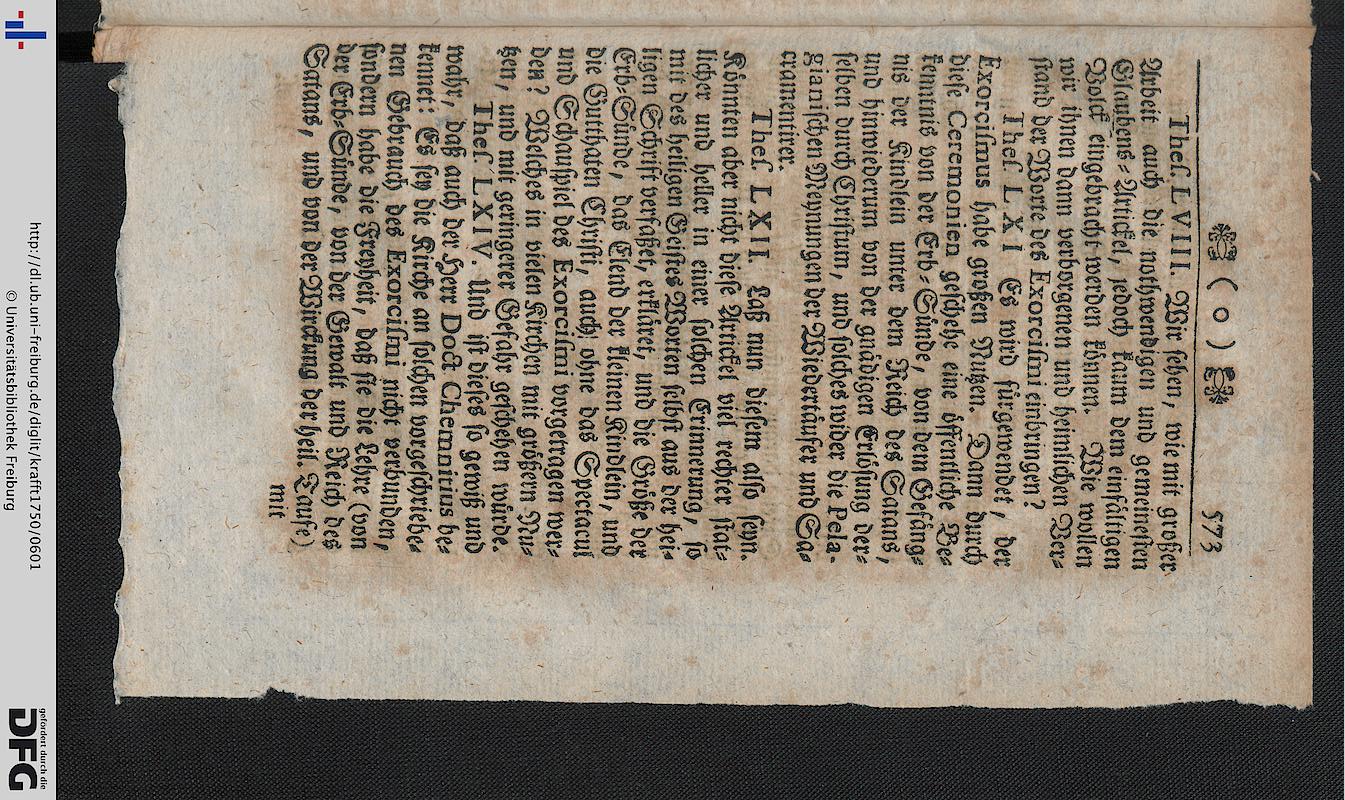 ❧ ( o ) ❧ 573
Theſ. LVIII. Wir ſehen, wie mit großer
Arbeit auch die nothwendigen und gemeineſten
Glaubens-Artickel, jedoch kaum dem einfältigen
Volck eingebracht werden können. Wie wollen
wir ihnen dann verborgenen und heimlichen Ver-
ſtand der Worte des Exorciſmi einbringen?
Theſ. LXI Es wird fürgewendet, der
Exorciſmus habe großen Nutzen. Dann durch
dieſe Ceremonien geſchehe eine öffentliche Be-
kenntnis von der Erb-Sünde, von dem Gefäng-
nis der Kindlein unter dem Reich des Satans,
und hinwiederum von der gnädigen Erlöſung der-
ſelben durch Chriſtum, und ſolches wider die Pela-
gianiſchen Meynungen der Wiedertäufer und Sa-
cramentirer.
Theſ. LXII. Laß nun dieſem alſo ſeyn.
Könnten aber nicht dieſe Artickel viel rechter ſtat-
licher und heller in einer ſolchen Erinnerung, ſo
mit des heiligen Geiſtes Worten ſelbſt aus der hei-
ligen Schrift verfaßet, erkläret, und die Größe der
Erb-Sünde, das Elend der kleinen Kindlein, und
die Guthaten Chriſti, auch ohne das Spectacul
und Schauſpiel des Exorciſmi vorgetragen wer-
den? Welches in vielen Kirchen mit größern Nu-
tzen, und mit geringerer Gefahr geſchehen würde.
Theſ. LXIV. Und iſt dieſes ſo gewiß und
wahr, daß auch der Herr Doct Chemnitius be-
kennet: Es ſey die Kirche an ſolchen vorgeſchriebe-
nen Gebrauch des Exorciſmi nicht verbunden,
ſondern habe die Freyheit, daß ſie die Lehre (von
der Erb-Sünde, von der Gewalt und Reich des
Satans, und von der Wirckung der heil. Taufe)
mit
http://dl.ub.uni-freiburg.de/diglit/krafft1750/0601
© Universitätsbibliothek Freiburg
gefördert durch die
DFG